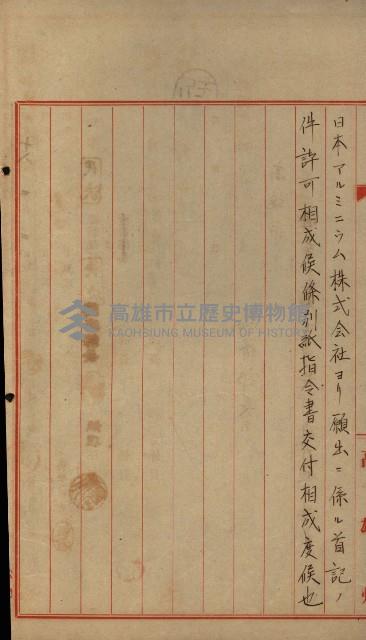 日本アルミニウム株式会社ヨリ願出ニ係ル首記ノ
件許可相成候條別紙指令書交付相成度候也
高雄州
高雄市立歷史博物館
KAOHSIUNG MUSEUM OF HISTORY